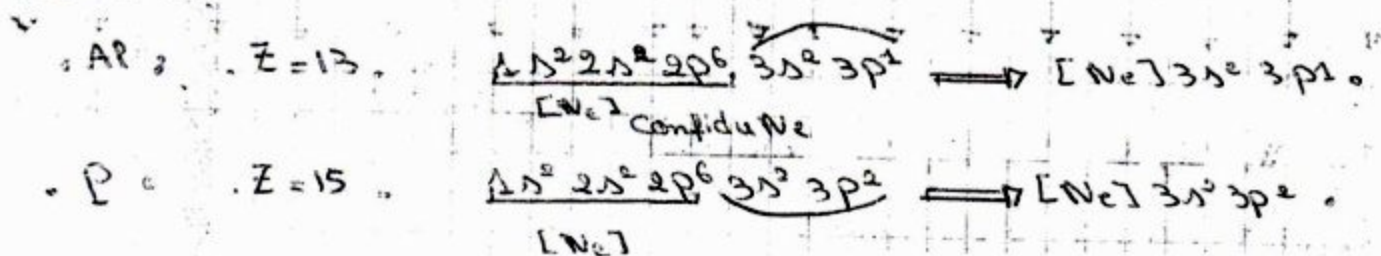 . Al : . Z = 13 . 1s² 2s² 2p⁶, 3s² 3p¹ ⟹ [Ne] 3s² 3p1 .
[Ne] Config du Ne
. P : . Z = 15 . 1s² 2s² 2p⁶ 3s³ 3p² ⟹ [Ne] 3s³ 3p² .
[Ne]